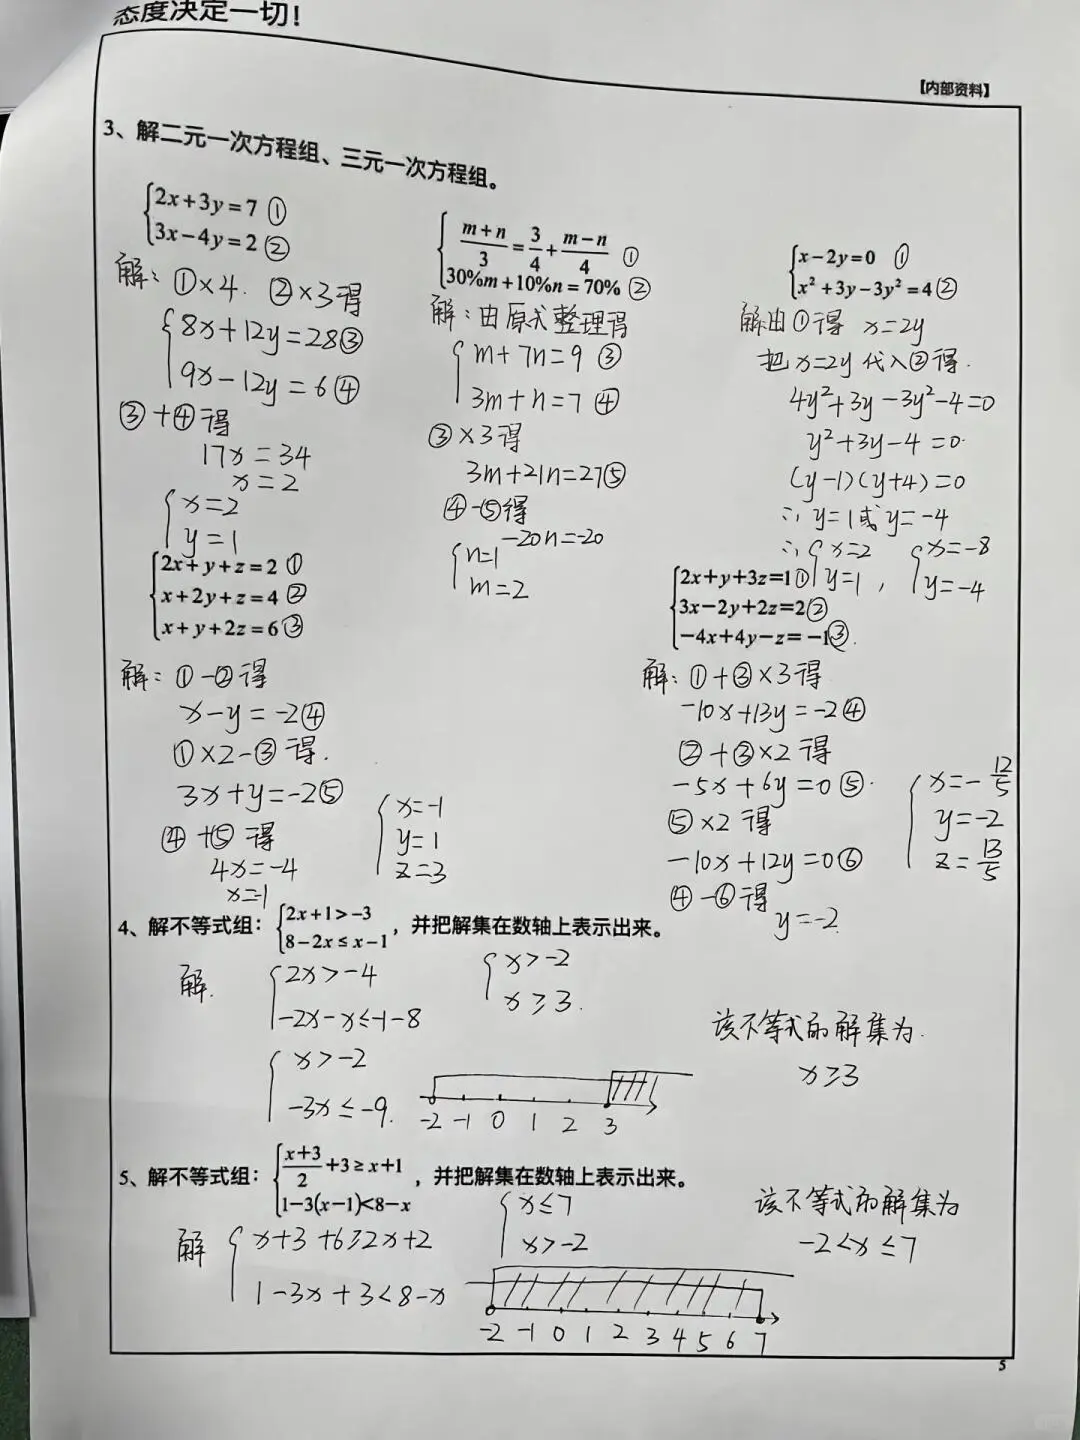 态度决定一切!
【内部资料】
3、解二元一次方程组、三元一次方程组。
2x+3y=7 ①
3x-4y=2 ②
解: ①×4. ②×3得
8x+12y=28③
9x-12y=6④
③+④得
17x=34
x=2
x=2
y=1
(m+n)/3=3/4+(m-n)/4 ①
30%m+10%n=70% ②
解:由原式整理得
m+7n=9 ③
3m+n=7 ④
③×3得
3m+21n=27⑤
④-⑤得
-20n=-20
n=1
m=2
x-2y=0 ①
x²+3y-3y²=4②
解:由①得 x=2y
把x=2y代入②得.
4y²+3y-3y²-4=0
y²+3y-4=0
(y-1)(y+4)=0
∴y=1或y=-4
∴ x=2 x=-8
y=1, y=-4
2x+y+z=2 ①
x+2y+z=4 ②
x+y+2z=6③
解: ①-②得
x-y=-2④
①×2-③得.
3x+y=-2⑤
④+⑤得
4x=-4
x=-1
x=-1
y=1
z=3
2x+y+3z=1①
3x-2y+2z=2②
-4x+4y-z=-1③.
解: ①+③×3得
-10x+13y=-2④
②+③×2得
-5x+6y=0⑤
⑤×2得
-10x+12y=0⑥
④-⑥得
y=-2
x=-12/5
y=-2
z=13/5
4、解不等式组: 2x+1>-3
8-2x≤x-1 ,并把解集在数轴上表示出来。
解. 2x>-4
-2x-x≤-1-8
x>-2
-3x≤-9.
x>-2
x≥3.
该不等式的解集为.
x≥3
-2 -1 0 1 2 3
5、解不等式组: (x+3)/2+3≥x+1
1-3(x-1)<8-x ,并把解集在数轴上表示出来。
解 x+3+6≥2x+2
1-3x+3<8-x
x≤7
x>-2
该不等式的解集为
-2<x≤7
-2 -1 0 1 2 3 4 5 6 7
5